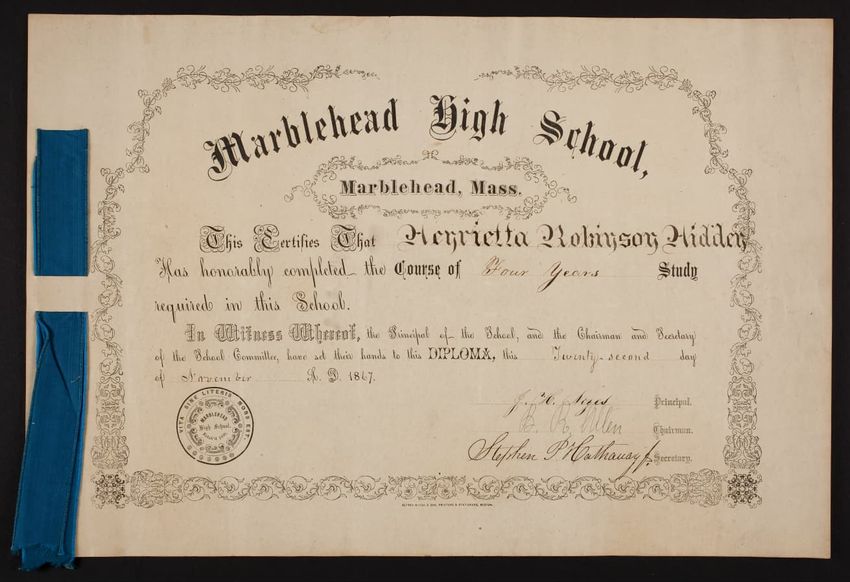 Marblehead High School,
Marblehead, Mass.
This Certifies That Henrietta Robinson Hidden
Has honorably completed the Course of Four Years Study
required in this School.
In Witness Whereof, the Principal of the School, and the Chairman and Secretary
of the School Committee, have set their hands to this DIPLOMA, this Twenty-second day
of November A. D. 1867.
VITA SINE LITERIS MORS EST.
MARBLEHEAD
High School.
Principal.
B. R. Allen Chairman.
Stephen P Hathaway Jr. Secretary.